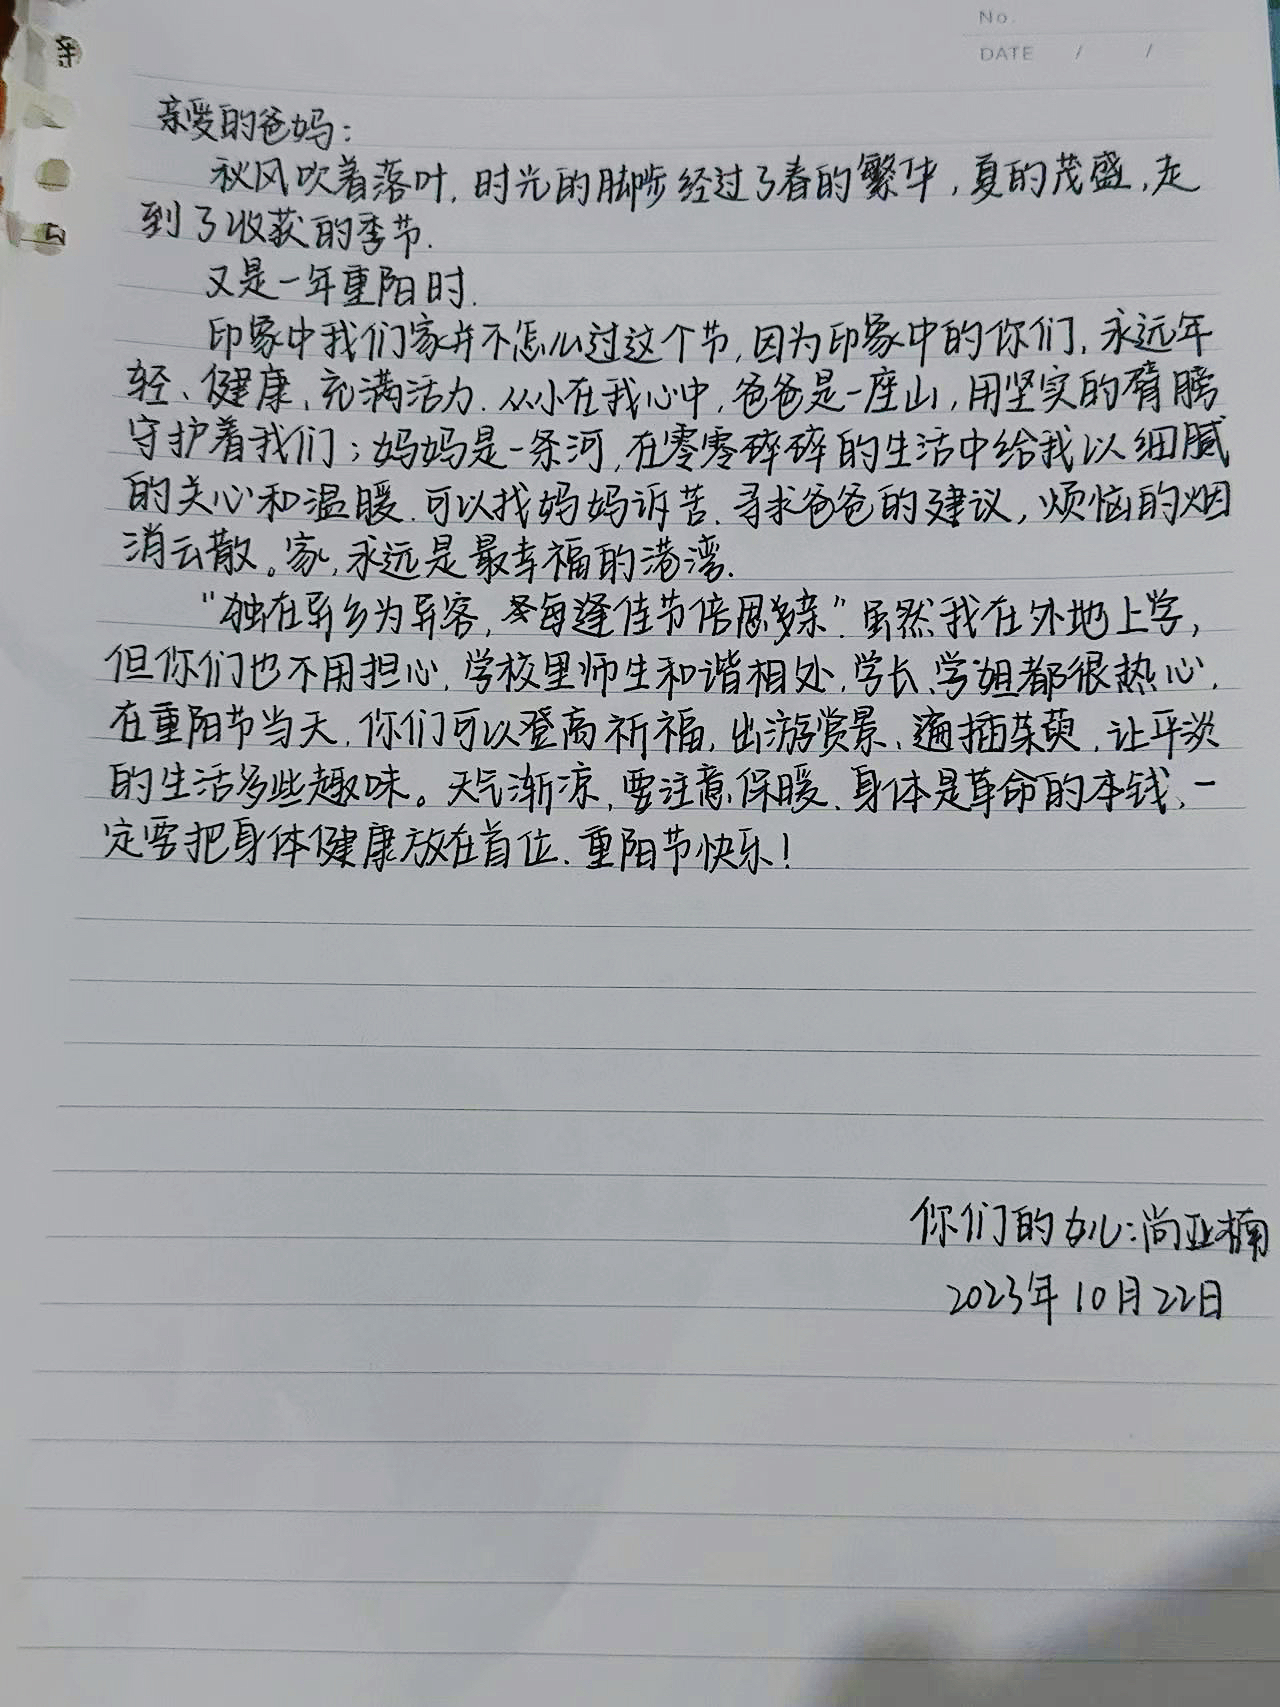 No.
DATE / /
亲爱的爸妈:
秋风吹着落叶,时光的脚步经过了春的繁华,夏的茂盛,走
到了收获的季节.
又是一年重阳时.
印象中我们家并不怎么过这个节,因为印象中的你们,永远年
轻、健康、充满活力.从小在我心中,爸爸是一座山,用坚实的臂膀
守护着我们;妈妈是一条河,在零零碎碎的生活中给我以细腻
的关心和温暖.可以找妈妈诉苦.寻求爸爸的建议,烦恼的烟
消云散。家,永远是最幸福的港湾.
"独在异乡为异客,每逢佳节倍思亲".虽然我在外地上学,
但你们也不用担心.学校里师生和谐相处.学长、学姐都很热心.
在重阳节当天.你们可以登高祈福,出游赏景、遍插茱萸,让平淡
的生活多些趣味。天气渐凉,要注意保暖.身体是革命的本钱,一
定要把身体健康放在首位.重阳节快乐!
你们的女儿:尚亚楠
2023年10月22日